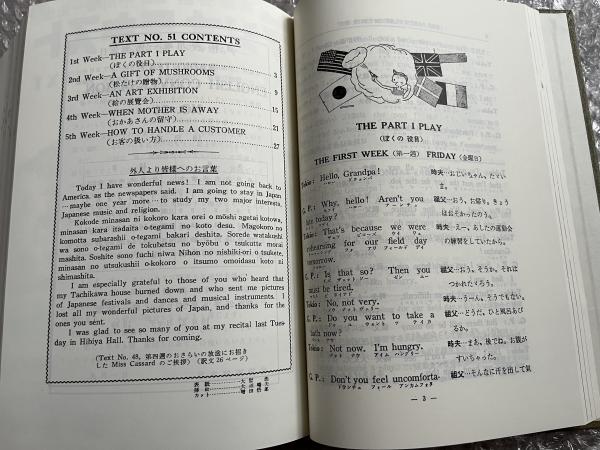 TEXT NO. 51 CONTENTS
1st Week—THE PART I PLAY
(ぼくの役目)
2nd Week—A GIFT OF MUSHROOMS 3
(松たけの贈物)
3rd Week—AN ART EXHIBITION 9
(絵の展覧会)
4th Week—WHEN MOTHER IS AWAY 15
(おかあさんの留守)
5th Week—HOW TO HANDLE A CUSTOMER 21
(お客の扱い方) 27
外人より皆様へのお言葉
Today I have wonderful news! I am not going back to
America, as the newspapers said. I am going to stay in Japan
…maybe one year more… to study my two major interests,
Japanese music and religion.
Kokode minasan ni kokoro kara orei o mōshi agetai kotowa,
minasan kara itadaita o-tegami no koto desu. Magokoro no
komotta subarashii o-tegami bakari deshita. Sorede watakushi
wa sono o-tegami de tokubetsu no byōbu o tsukutte morai
mashita. Soshite sono fuchi niwa Nihon no nishiki-ori o tsukete,
minasan no utsukushii o-kokoro o itsumo omidasu koto ni
shimashita.
I am especially grateful to those of you who heard that
my Tachikawa house burned down and who sent me pictures
of Japanese festivals and dances and musical instruments. I
lost all my wonderful pictures of Japan, and thanks for the
ones you sent.
I was glad to see so many of you at my recital last Tues-
day in Hibiya Hall. Thanks for coming.
(Text No. 48, 第四週のおさらいの放送にお招き
した Miss Cassard のご挨拶) (訳文26ページ)
THE PART I PLAY
(ぼくの 役目)
THE FIRST WEEK (第一週) FRIDAY (金曜日)
Tokio: Hello, Grandpa! 時夫…おじいちゃん、ただい
ま。
G. P.: Why, hello! Aren't you 祖父…おう、お帰り。きょう
late today? はおそかったのう。
Tokio: That's because we were 時夫…えー、あしたの運動会
rehearsing for our field day の練習をしていたから。
tomorrow.
G. P.: Is that so? Then you 祖父…おう、そうか。それは
must be tired. つかれたろう。
Tokio: No, not very. 時夫…うーん。そうでもない。
G. P.: Do you want to take a 祖父…どうだ、ひと風呂あび
bath now? るか。
Tokio: Not now. I'm hungry. 時夫…まあ、後でね。お腹が
すいちゃった。
G. P.: Don't you feel uncomforta- 祖父…そんなに汗を出して気
— 3 —